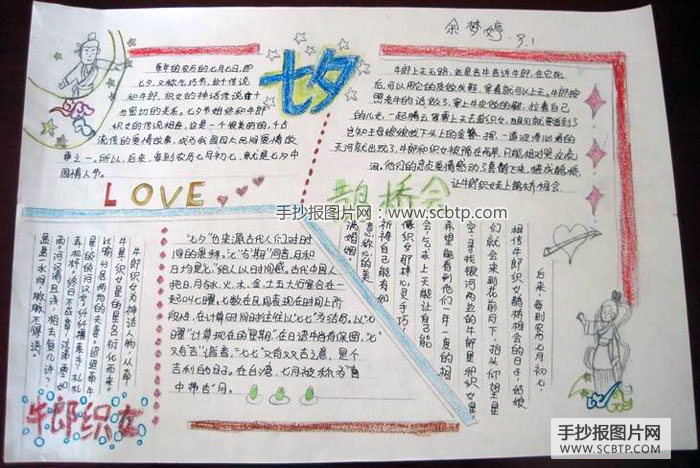 余梦婷 3.1
七夕
每年的农历的七月七日,即
七夕,又称乞巧节,这个传说
和牛郎、织女的神话传说有十
分密切的关系。七夕节始终和牛郎
织女的传说相连,这是一个很美丽的,千古
流传的爱情故事,成为我国四大民间爱情故
事之一。所以,后来,每到农历七月初七,就是七夕中
国情人节。
LOVE
牛郎上天无路,还是老牛告诉牛郎,在它死
后,可以用它的皮做成鞋,穿着就可以上天。牛郎按
照老牛的话做了,穿上牛皮做的鞋,拉着自己
的儿女,一起腾云驾雾上天去追织女,眼见就要追到了
岂知王母娘娘拔下头上的金簪一挥,一道波涛汹涌的
天河就出现了,牛郎和织女被隔在两岸,只能相对哭泣流
泪。他们的忠贞爱情感动了喜鹊
让牛郎织女走上鹊桥相会
鹊桥会
手抄报图片网:www.scbtp.com
"七夕"也来源古代人们对时
间的崇拜。
日均是"七",给人以时间感。古代中国人
把日、月与水、火、木、金、土五大行星合在一
起叫七曜。七数在民间表现在时间上阶
段性,在计算时间时往往以"七七"为终局。以"七
曜"计算现在的"星期",在日语中尚有保留。"七"
又有吉
吉利的日子。在台湾,七月被称为"喜
中带吉"月。
牛郎织女为神话人物,从牵
牛星、织女星的星名衍化而来。
比喻分居两地的夫妻。迢迢牵牛
星,皎皎河汉女。纤纤擢素手,札札
弄机杼。终日不成章,泣涕零如
雨。河汉清且浅,相去复几许?
盈盈一水间,脉脉不得语。
牛郎织女
后来,每到农历七月初七,
相传牛郎织女鹊桥相会的日子,姑娘
们就会来到花前月下,抬头仰望星
空,寻找银河两边的牛郎星和织女星,
希望能看到他们一年一度的相
会,乞求上天能让自己能
像织女那样心灵手巧,
祈祷自己能有如
意称心的美
满婚姻
手抄报图片网
WWW.SCBTP.COM